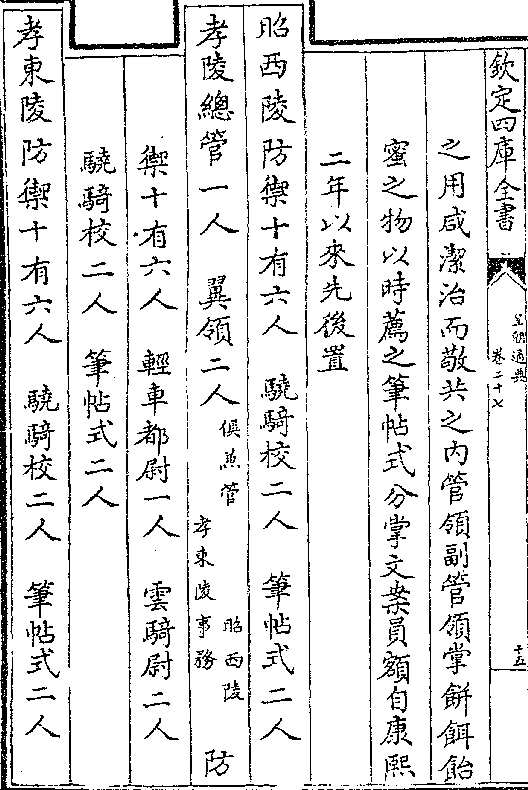 欽定四庫全書
皇朝通典
卷二十七
十五
之用咸潔治而敬共之内管領副管領掌餅餌飴
蜜之物以時薦之筆帖式分掌文案員額自康熙
二年以來先後置
昭西陵防禦十有六人 驍騎校二人 筆帖式二人
孝陵總管一人 翼領二人 俱兼管昭西陵孝東陵事務 防
禦十有六人 輕車都尉一人 雲騎尉二人
驍騎校二人 筆帖式二人
孝東陵防禦十有六人 驍騎校二人 筆帖式二人